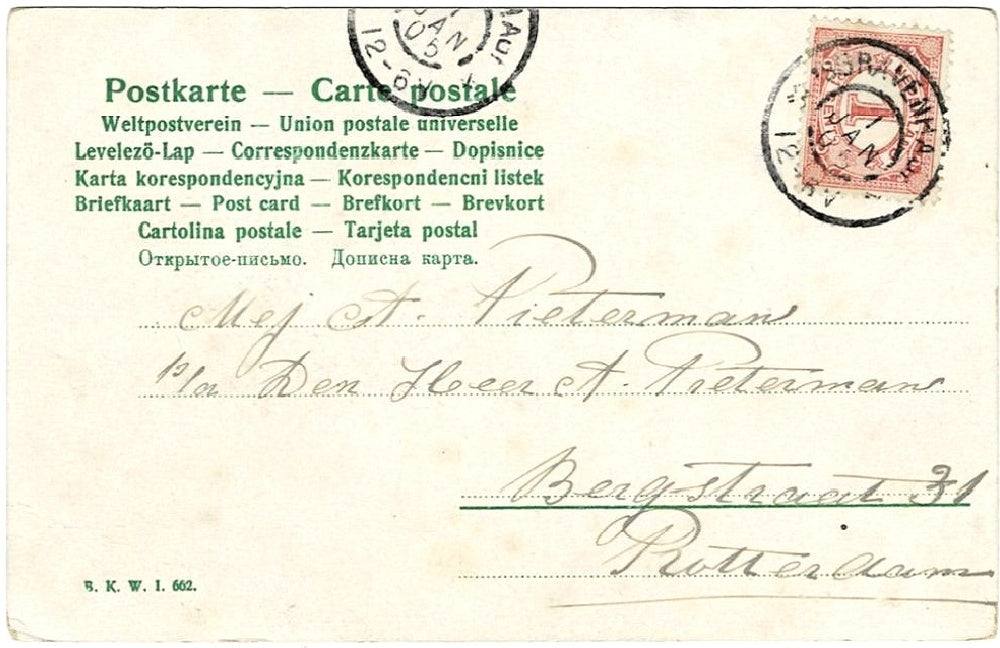 JAN
05
12-6V
Postkarte — Carte postale
Weltpostverein — Union postale universelle
Levelezō-Lap — Correspondenzkarte — Dopisnice
Karta korespondencyjna — Korespondencni listek
Briefkaart — Post card — Brefkort — Brevkort
Cartolina postale — Tarjeta postal
Открытое-письмо. Дописна карта.
1
'SGRAVENHAGE
1
JAN
12-6V
Mej A. Pieterman
p/a Den Heer A. Pieterman
Bergstraat 31
Rotterdam
B. K. W. I. 662.